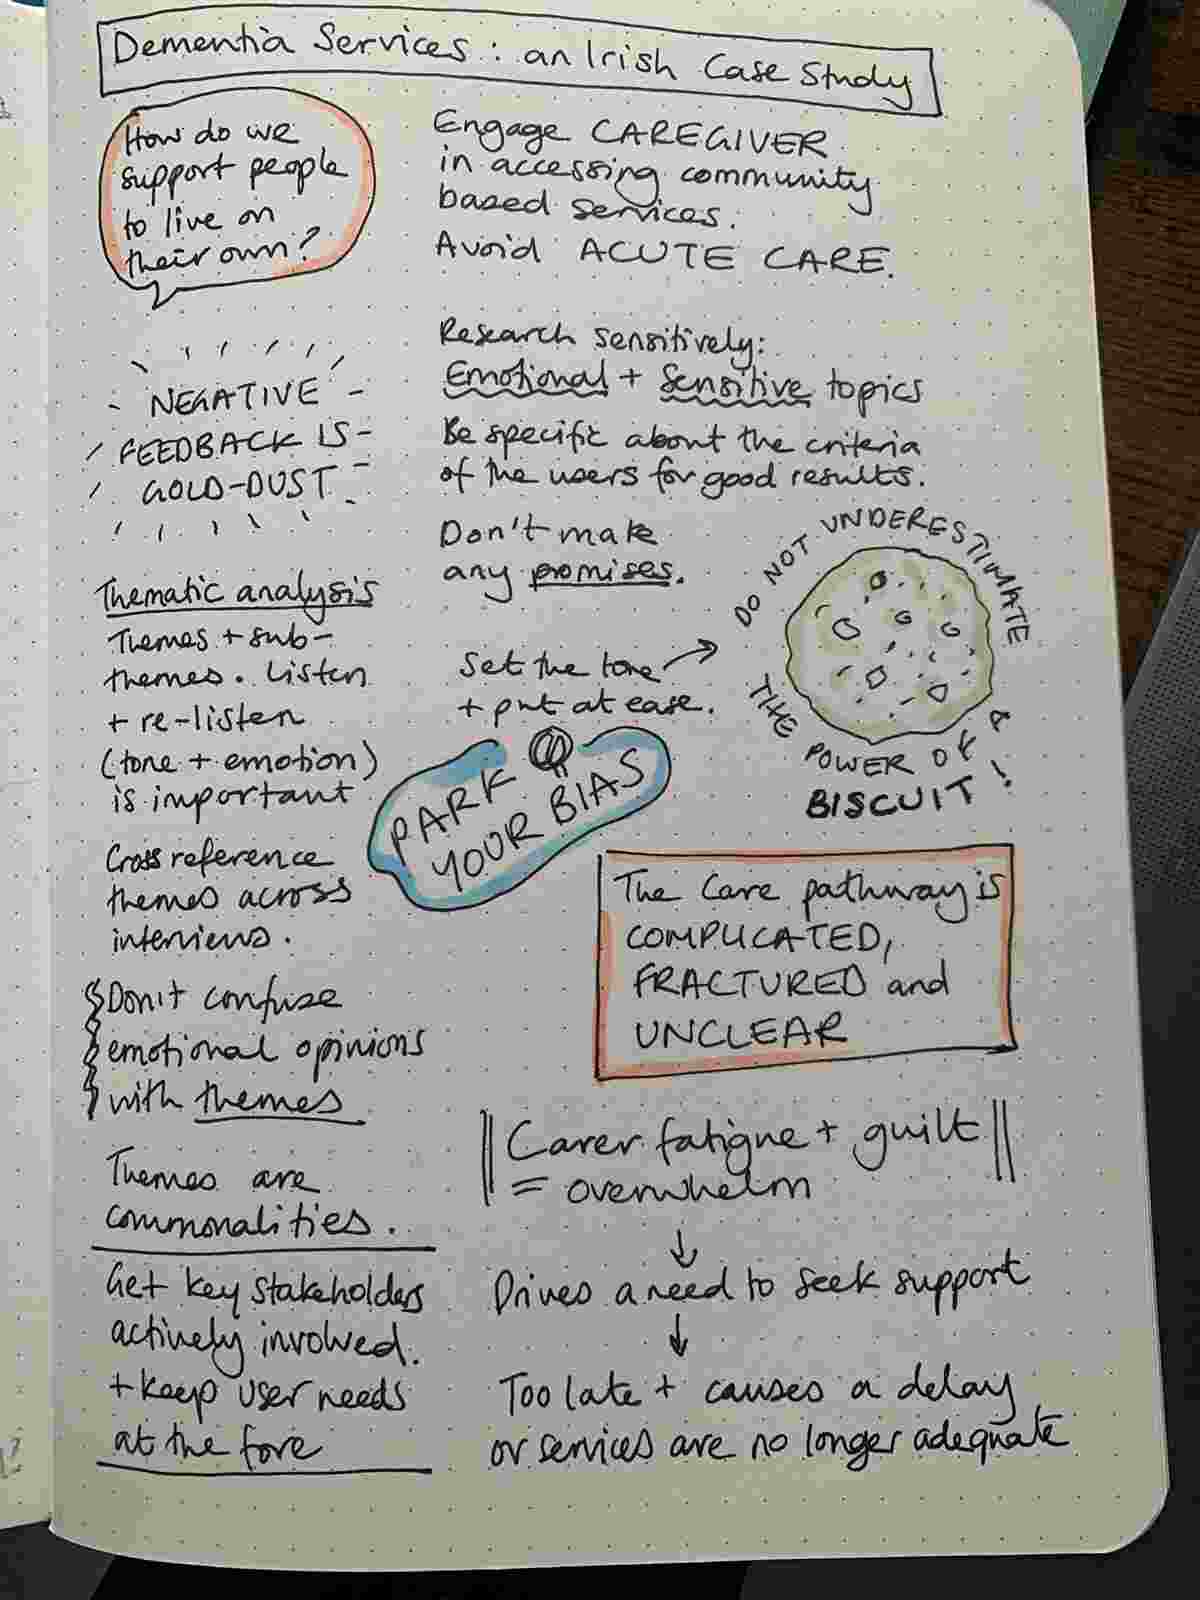 Dementia Services: an Irish Case Study
How do we
support people
to live on
their own?
Engage CAREGIVER
in accessing community
based services.
Avoid ACUTE CARE.
NEGATIVE
FEEDBACK IS
GOLD-DUST
Research sensitively:
Emotional + Sensitive topics
Be specific about the criteria
of the users for good results.
Don't make
any promises.
Set the tone
+ put at ease.
DO NOT UNDERESTIMATE
THE POWER OF A
BISCUIT!
Thematic analysis
Themes + sub-
themes. Listen
+ re-listen
(tone + emotion)
is important
PARK
YOUR BIAS
Cross reference
themes across
interviews.
The Care pathway is
COMPLICATED,
FRACTURED and
UNCLEAR
Don't confuse
emotional opinions
with themes
Themes are
commonalities.
Carer fatigue + guilt
= overwhelm
Drives a need to seek support
Too late + causes a delay
or services are no longer adequate
Get key stakeholders
actively involved.
+ keep user needs
at the fore